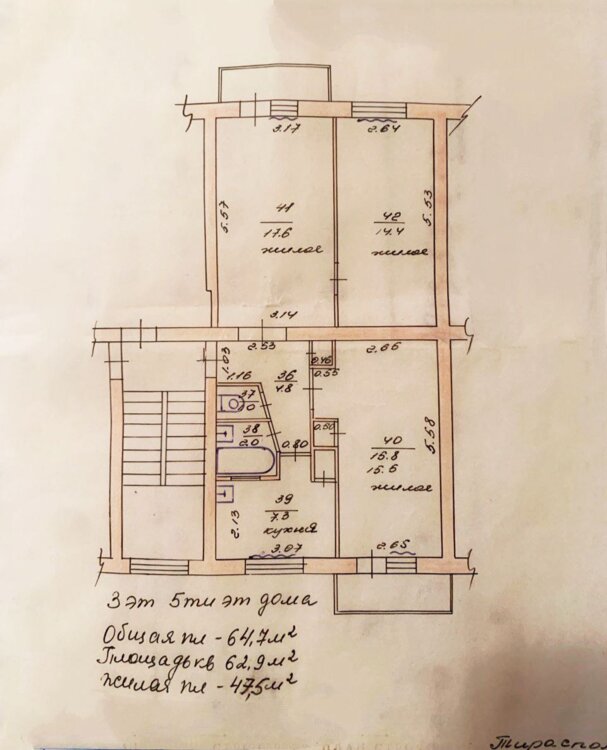 3.17
2.64
5.57
41
17.6
жилое
42
14.4
жилое
5.53
3.14
2.53
2.66
1.03
1.16
36
4.8
0.46
0.55
37
1.0
38
2.0
0.80
0.50
40
15.8
15.6
жилое
5.58
39
7.3
кухня
2.13
3.07
2.65
3 эт 5ти эт дома
Общая пл - 64,7 м²
Площадь кв 62,9 м²
Жилая пл - 47,5 м²
Тираспо